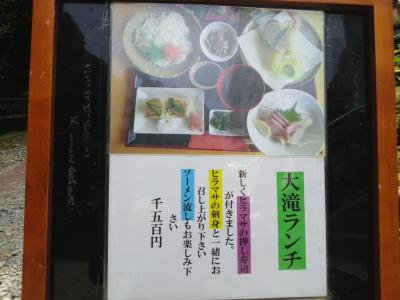 大滝ランチ
新しくヒラマサの押し寿司
が付きました。
ヒラマサの刺身と一緒にお
召し上がり下さい
ソーメン流しもお楽しみ下
さい
千五百円